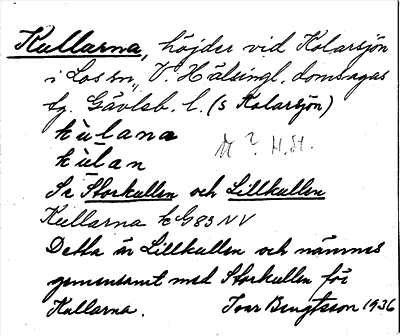 Kullarna, höjder vid Kolarsjön
i Los sn, V. Hälsingl. domsagas
tg. Gävleb. l. (s Kolarsjön)
kùlana
kùlan
M? H.St.
Se Storkullen och Lillkullen
Kullarna kG83NV
Detta är Lillkullen och nämnes
gemensamt med Storkullen för
Kullarna. Ivar Bengtsson 1936